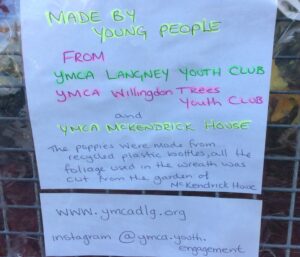 MADE BY
YOUNG PEOPLE
FROM
YMCA LANGNEY YOUTH CLUB
YMCA Willingdon Trees
Youth Club
and
YMCA McKENDRICK HOUSE
The poppies were made from
recycled plastic bottles, all the
foliage used in the wreath was
cut from the garden of
McKendrick House
www.ymcadlg.org
instagram @ymca.youth.
engagement